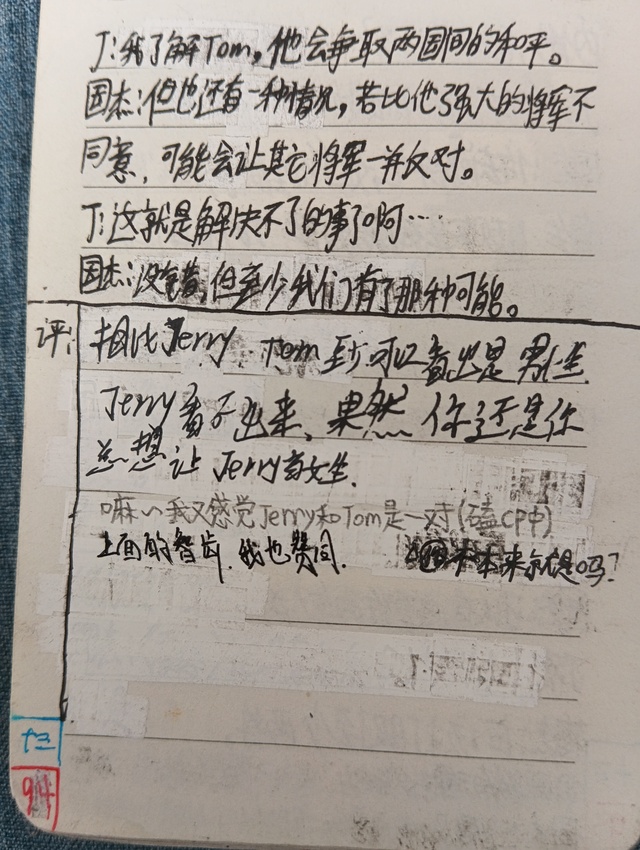 J:我了解Tom,他会争取两国间的和平。
国杰:但也还有一种情况,若比他强大的将军不
同意,可能会让其它将军一并反对。
J:这就是解决不了的事了啊…
国杰:没错,但至少我们有了那种可能。
评:
相比Jerry Tom至少可以看出是男生
Jerry看不出来、果然 你还是你
总想 让 Jerry当女生.
嘛~我又感觉Jerry和Tom是一对(磕CP中)
上面的智齿.我也赞同.
本来就是吗?
十三
94